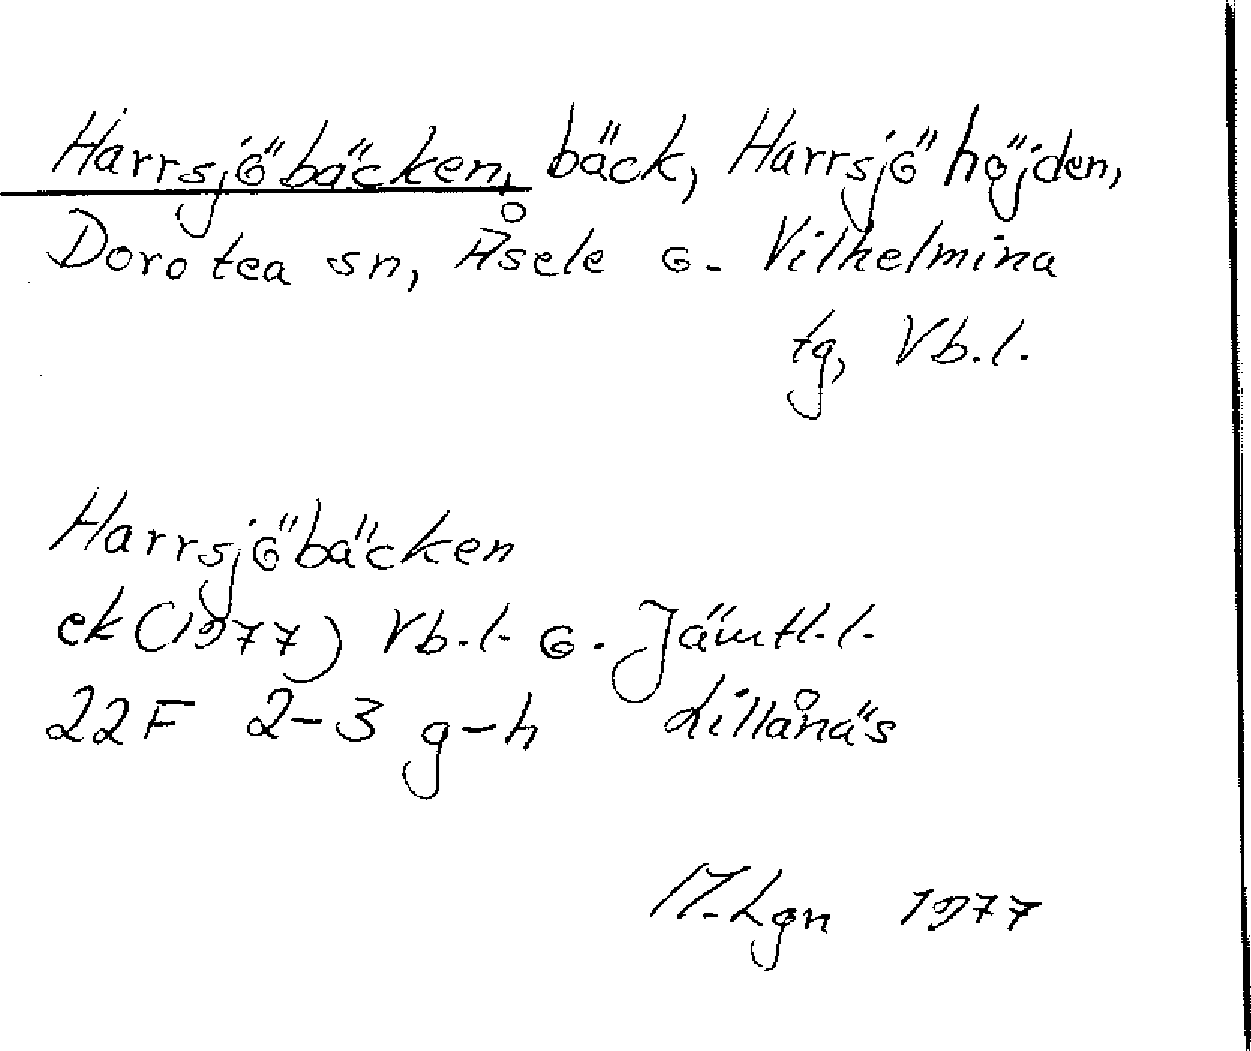 Harrsjöbäcken, bäck, Harrsjöhöjden,
Dorotea sn, Åsele o. Vilhelmina
tg, Vb.l.
Harrsjöbäcken
ek (1977) Vb.l. o. Jämtl.l.
22F 2-3 g-h Lillånäs
M.Lgn 1977